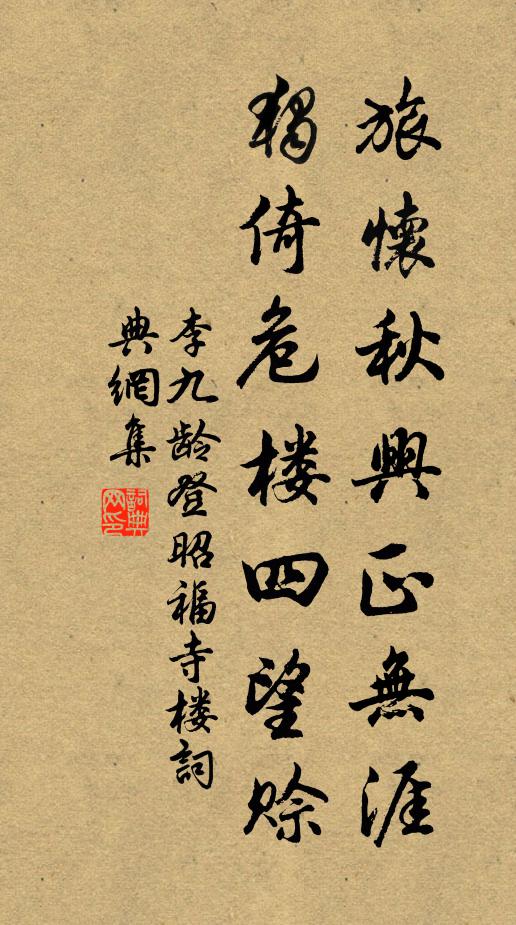 旅懷秋興正無涯
獨倚危楼四望赊
李九龄登昭福寺楼詞
典網集
詞典网印